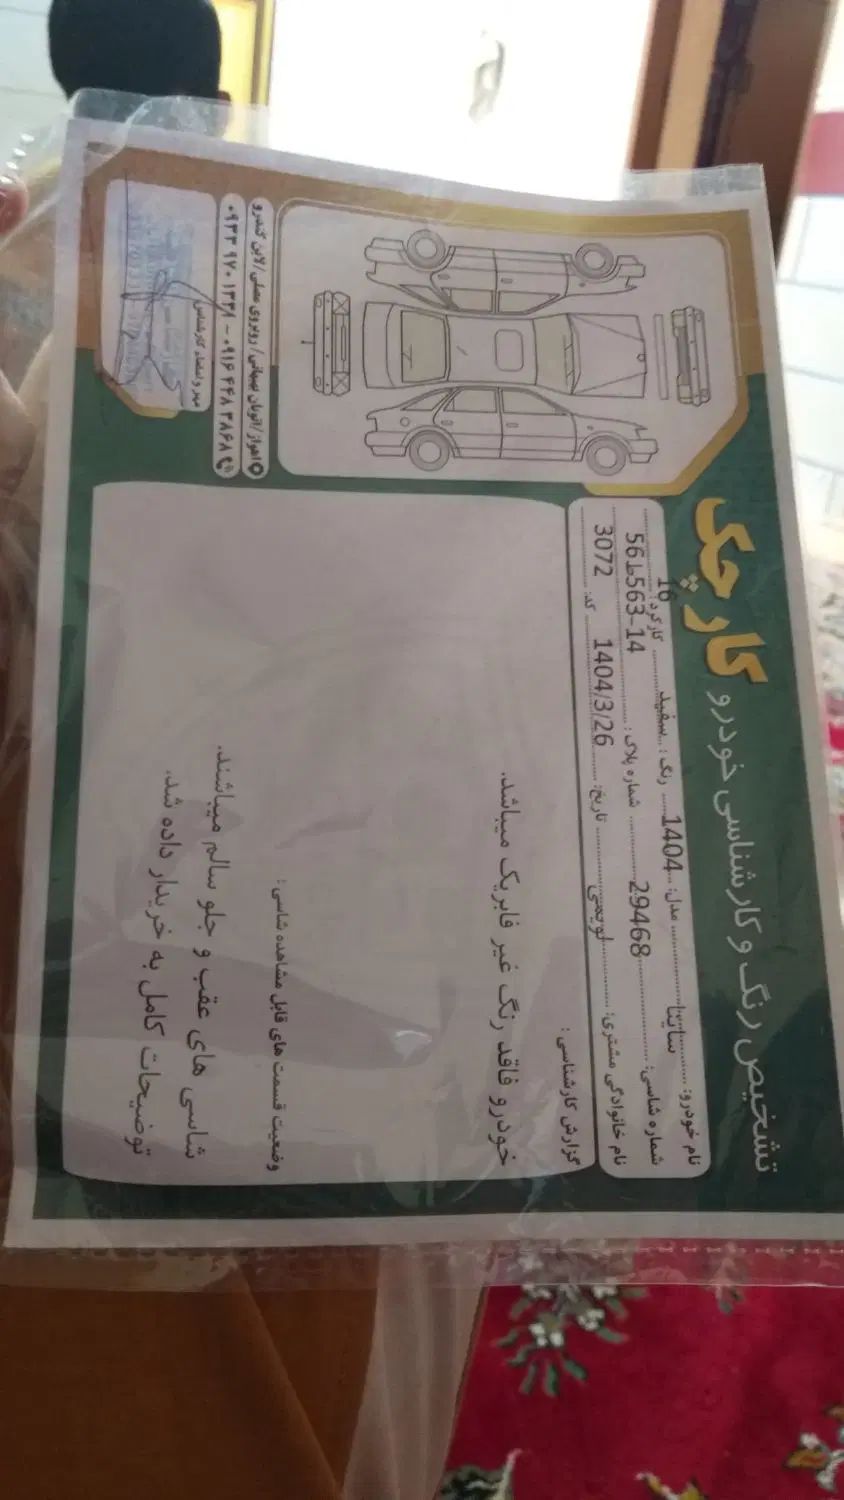 کارچک
تشخیص رنگ و کارشناسی خودرو
نام خودرو: ساینا مدل: 1404 رنگ: سفید کارکرد: 16
شماره شاسی: 29468 شماره پلاک: 56ط563-14
نام خانوادگی مشتری: لویمی تاریخ: 1404/3/26 کد: 3072
گزارش کارشناسی :
خودرو فاقد رنگ غیر فابریک میباشد.
وضعیت قسمت های قابل مشاهده شاسی :
شاسی های عقب و جلو سالم میباشند.
توضیحات کامل به خریدار داده شد.
اهواز/اتوبان سپهبانی/ روبروی مصلی/لاین کندرو
۰۹۳۳ ۹۷۰ ۱۳۳۸ - ۰۹۱۶ ۴۴۸ ۳۸۶۸
مهر و امضاء کارشناس